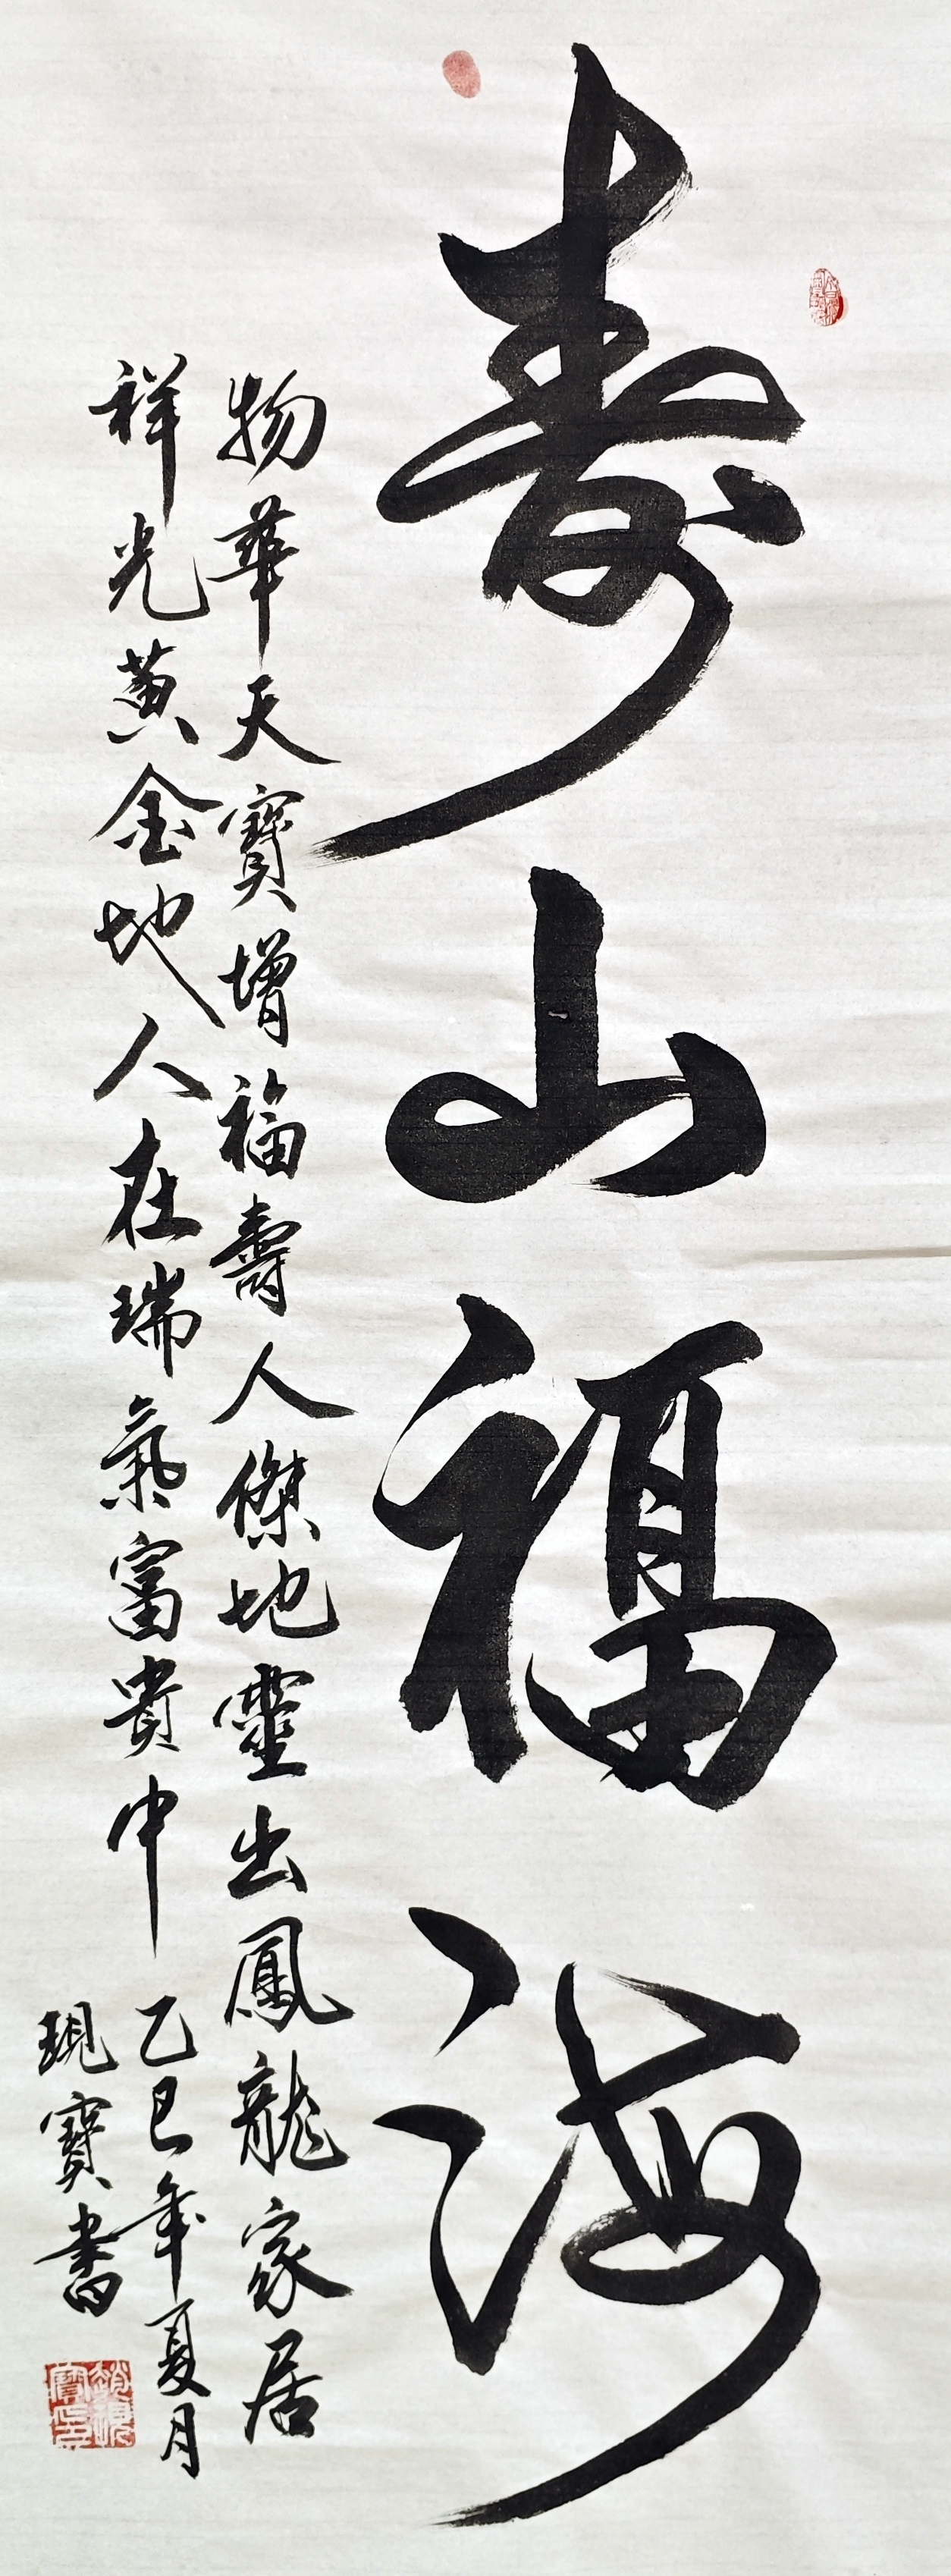 寿山福海
物華天寶增福壽人傑地靈出鳳龍家居
祥光黄金地人在瑞氣富貴中
乙巳年夏月
現寶書